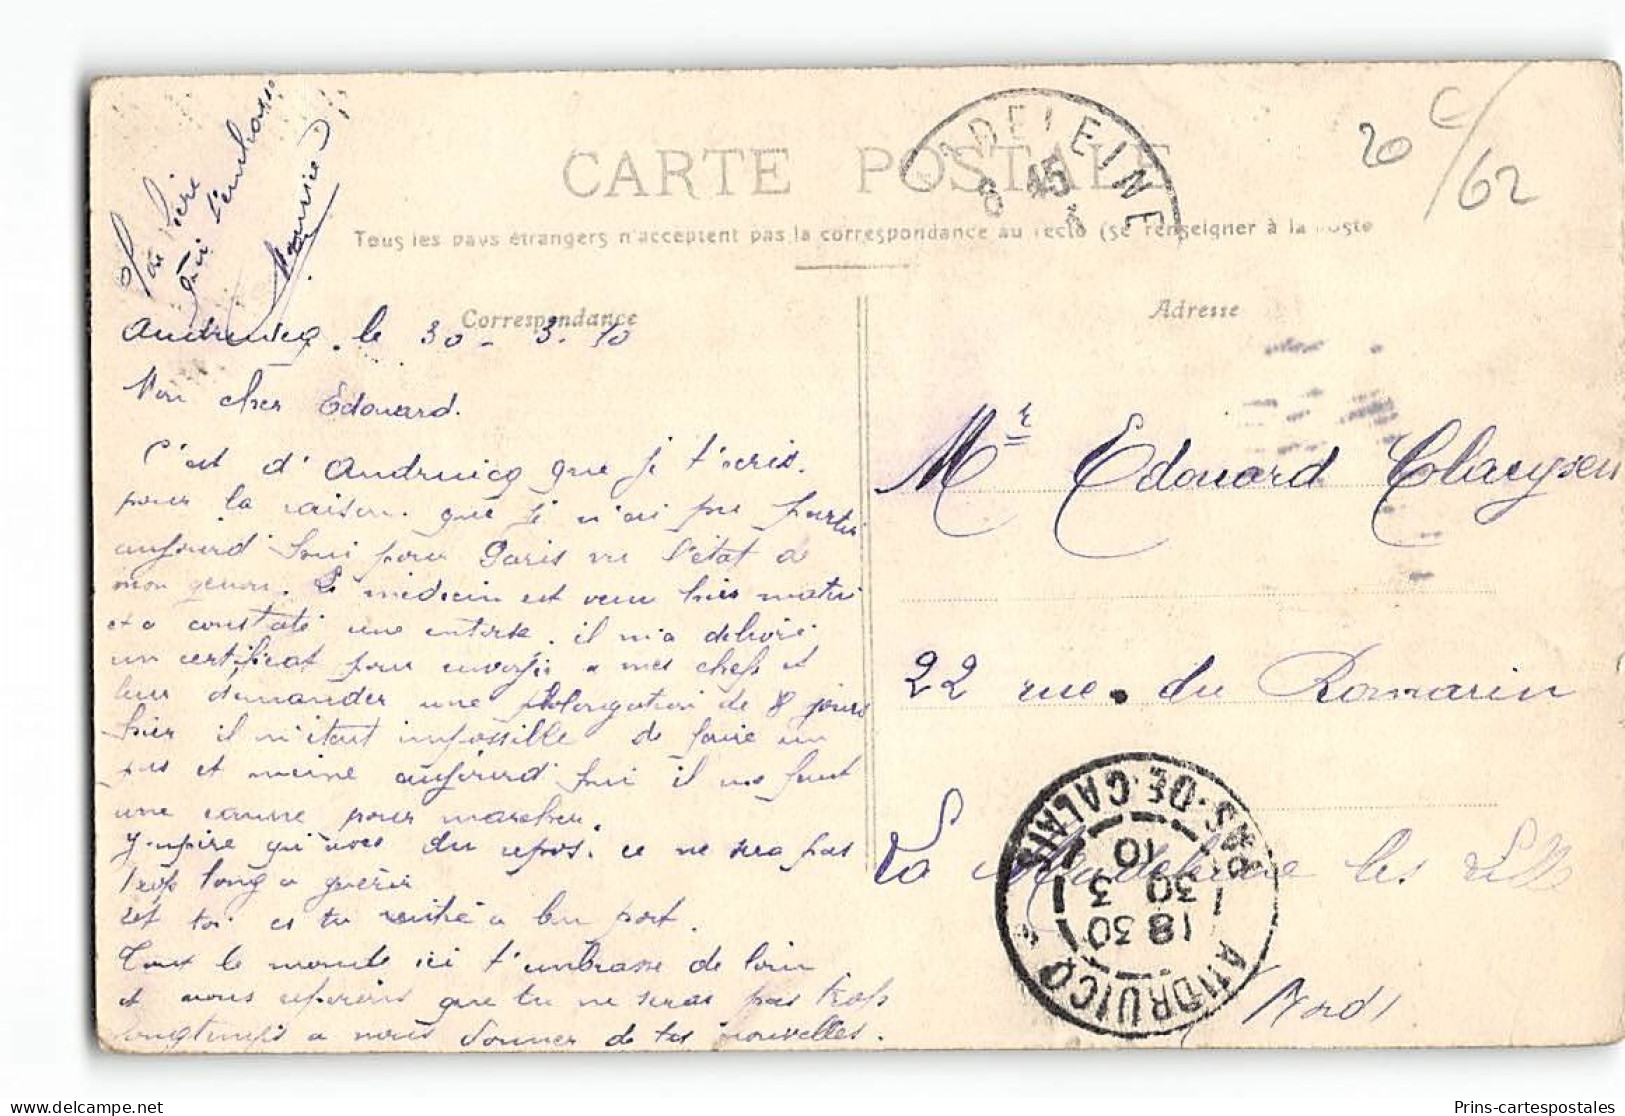 CARTE POSTALE
Tous les pays étrangers n'acceptent pas la correspondance au recto (se renseigner à la Poste
Correspondance
Adresse
20 c/62
ADELEINE
8 45
3
qui t'embrasse
Maurice
Andruicq. le 30 - 3. 10
Mon cher Edouard.
C'est d'Andruicq que je t'écris.
pour la raison. que je n'ai pu partir
aujourd'hui pour Paris vu l'état de
mon genou. Le médecin est venu hier matin
et a constaté une entorse. il m'a delivré
un certificat pour envoyer a mes chefs et
leur demander une prolongation de 8 jours
hier il m'était impossible de faire un
pas et meme aujourd'hui il me faut
une canne pour marcher.
J'espère qu'avec du repos. ce ne sera pas
trop long a guérir
et toi es tu rentré a bon port.
Tout le monde ici t'embrasse de loin
et nous espérons que tu ne seras pas trop
longtemps a nous donner de tes nouvelles.
Mr Edouard Claeysen
22 rue. du Romarin
La Madeleine les Lille
(Nord)
ANDRUICQ
PAS-DE-CALAIS
18 30
30 3
10
Prins-cartespostales